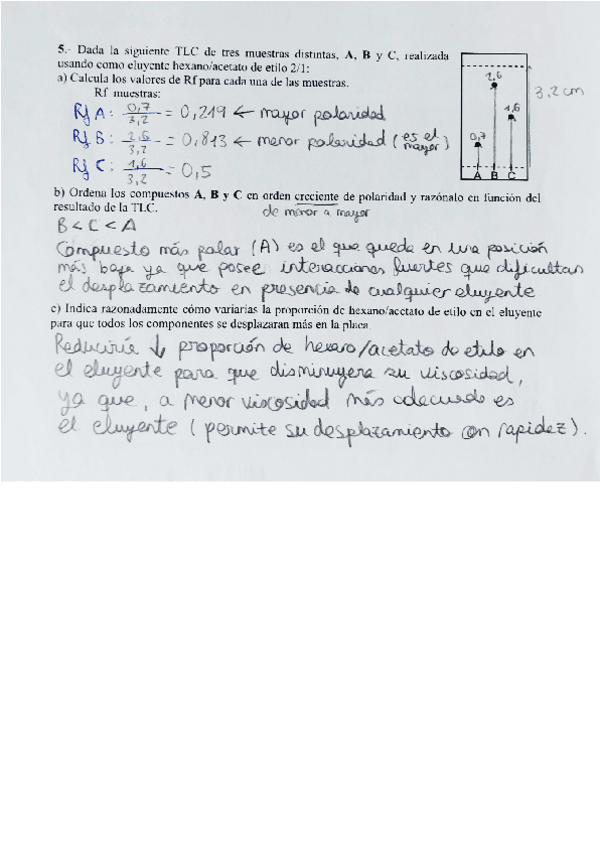 5.- Dada la siguiente TLC de tres muestras distintas, A, B y C, realizada
usando como eluyente hexano/acetato de etilo 2/1:
a) Calcula los valores de Rf para cada una de las muestras.
Rf muestras:
Rf A: 0,7/3,2 = 0,219 ← mayor polaridad
Rf B: 2,6/3,2 = 0,813 ← menor polaridad (es el mayor)
Rf C: 1,6/3,2 = 0,5
2,6
1,6
0,7
A B C
3,2 cm
b) Ordena los compuestos A, B y C en orden creciente de polaridad y razónalo en función del
resultado de la TLC.
de menor a mayor
B < C < A
Compuesto más polar (A) es el que queda en una posición
más baja ya que posee interacciones fuertes que dificultan
el desplazamiento en presencia de cualquier eluyente
c) Indica razonadamente cómo variarías la proporción de hexano/acetato de etilo en el eluyente
para que todos los componentes se desplazaran más en la placa.
Reduciría ↓ proporción de hexano/acetato de etilo en
el eluyente para que disminuyera su viscosidad,
ya que, a menor viscosidad más adecuado es
el eluyente (permite su desplazamiento con rapidez).